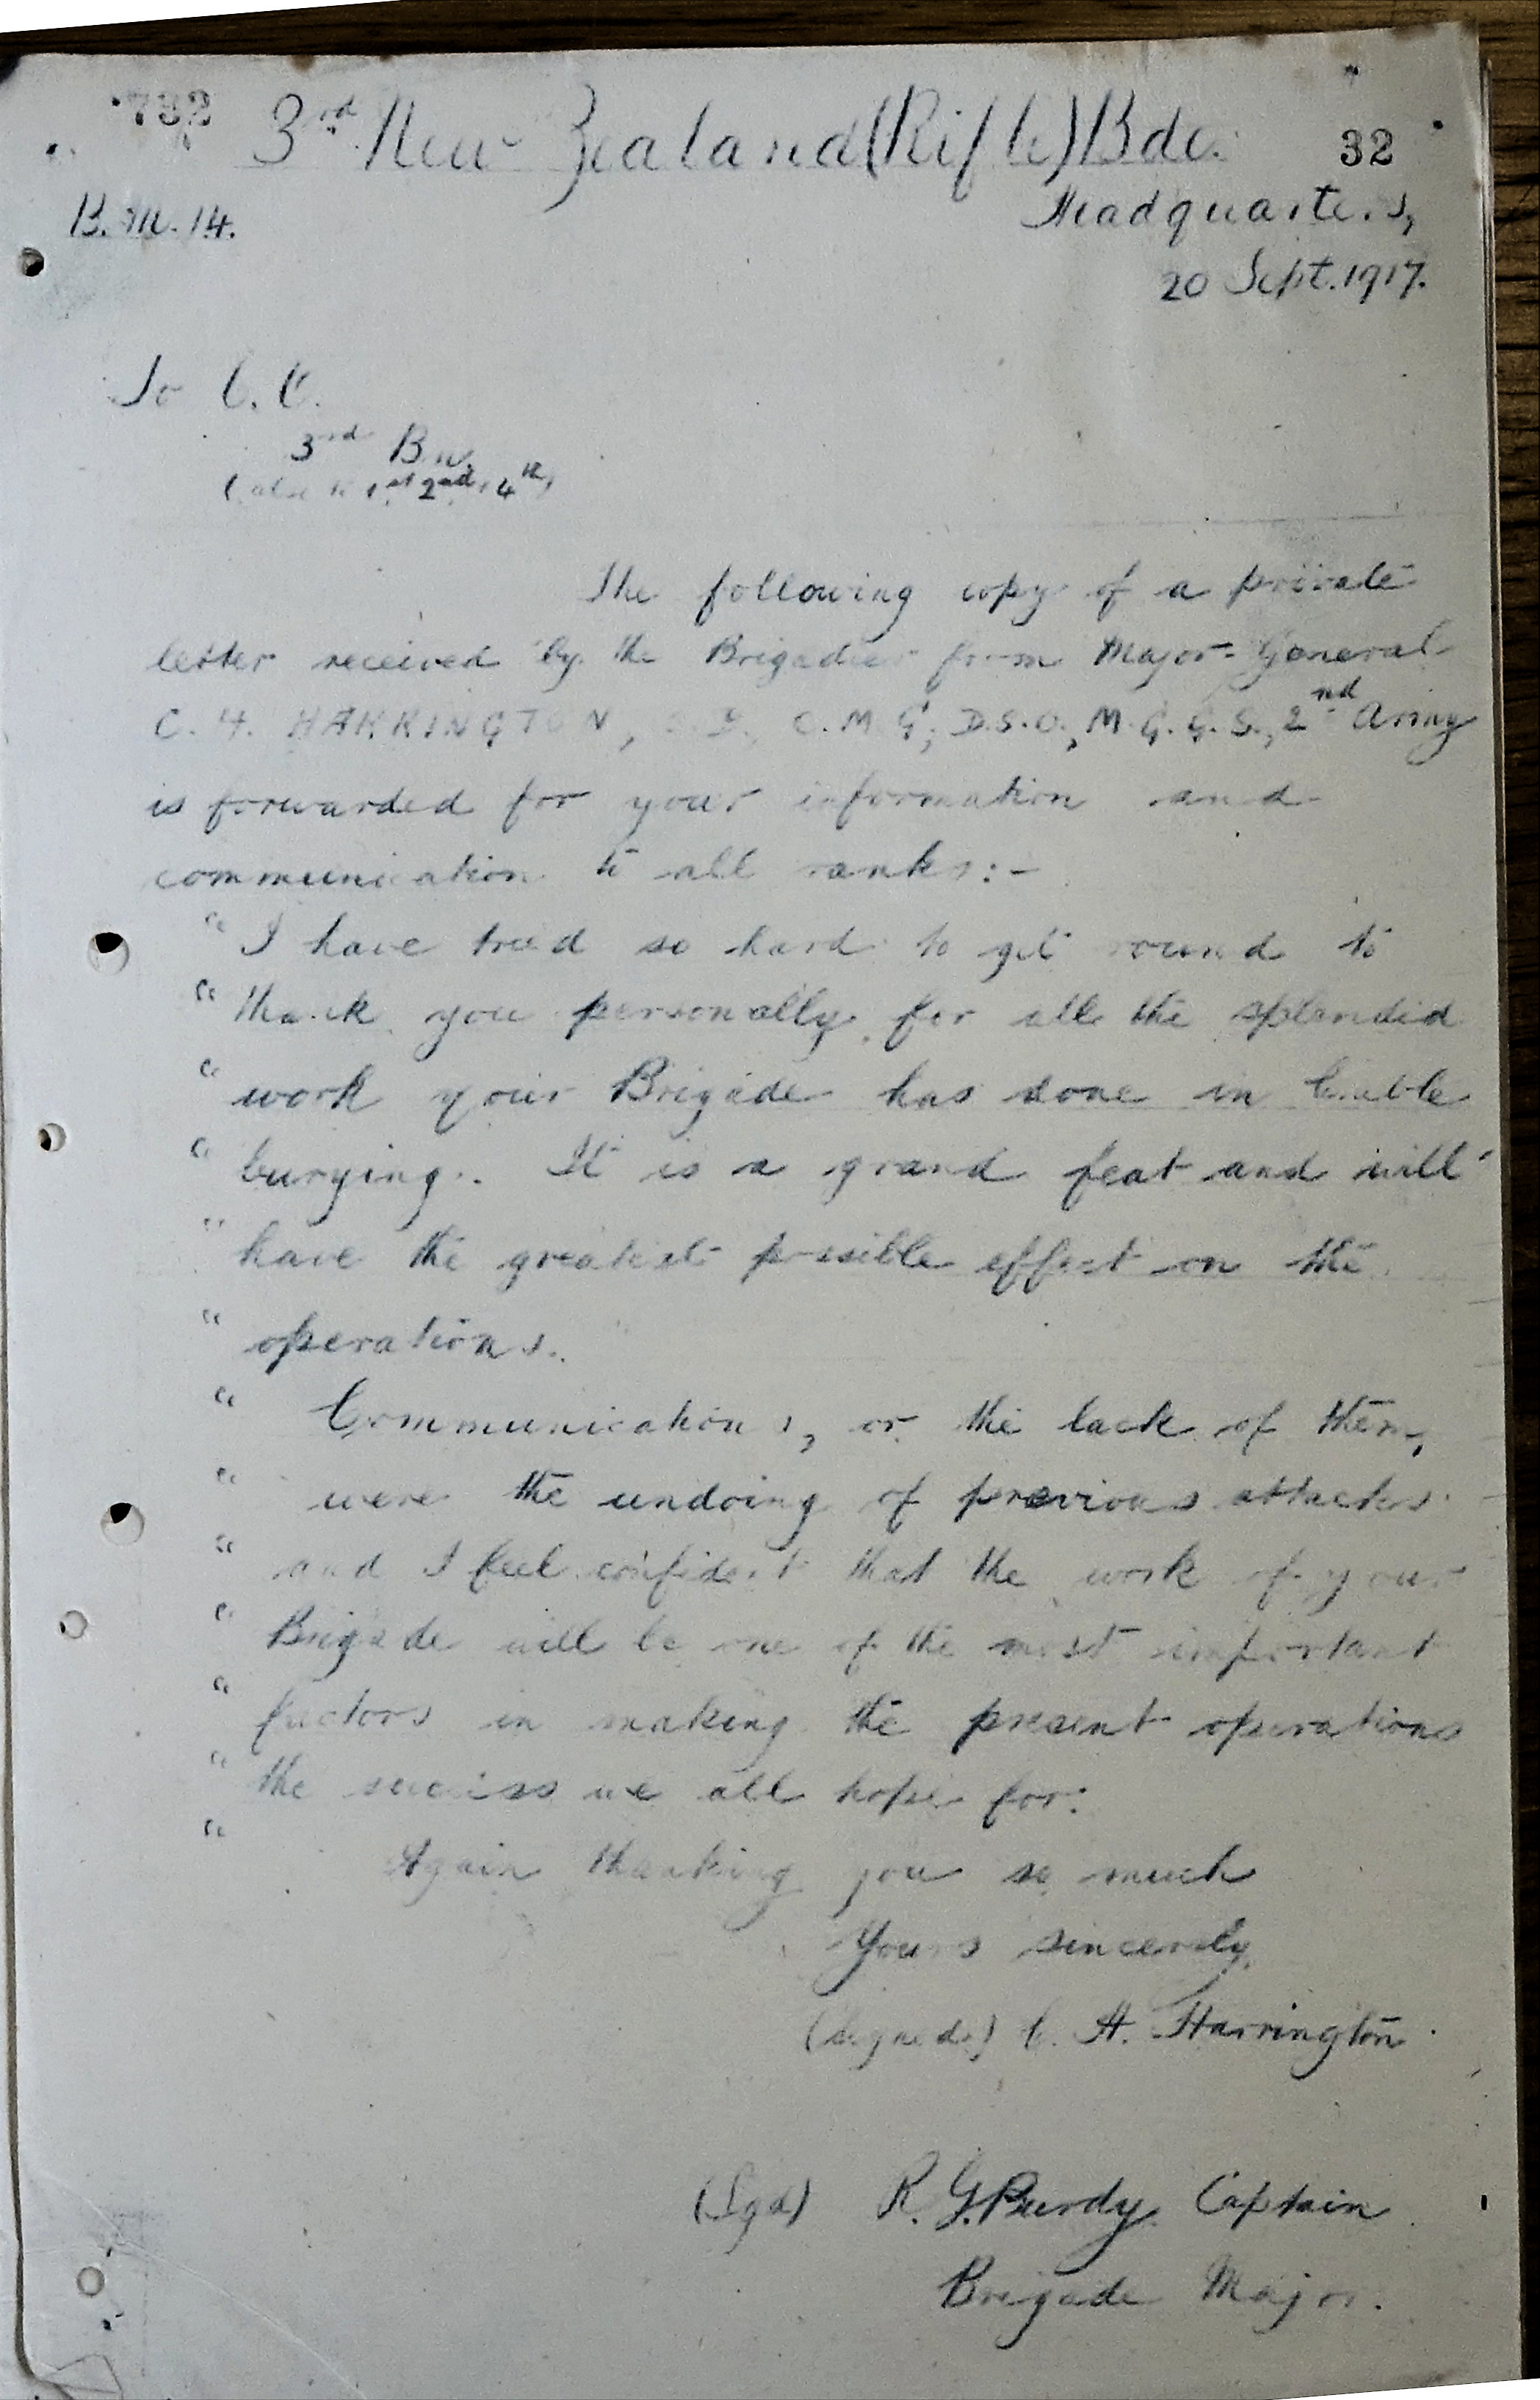 732
3rd New Zealand (Rifle) Bde.
32
B.M. 14.
Headquarters,
20 Sept. 1917.
To O.C.
3rd Bn.
(also to 1st 2nd, 4th)
The following copy of a private
letter received by the Brigadier from Major-General
C. H. HARRINGTON, C.M.G., D.S.O., M.G.G.S., 2nd Army
is forwarded for your information and
communication to all ranks:-
" I have tried so hard to get round to
" thank you personally for all the splendid
" work your Brigade has done in Cable
" burying. It is a grand feat and will
" have the greatest possible effect on the
" operations.
" Communications, or the lack of them,
" were the undoing of previous attacks
" and I feel confident that the work of your
" Brigade will be one of the most important
" factors in making the present operations
" the success we all hope for.
" Again thanking you so much
Yours sincerely,
(Signed) C. H. Harrington
(Sgd) R. G. Purdy Captain
Brigade Major.